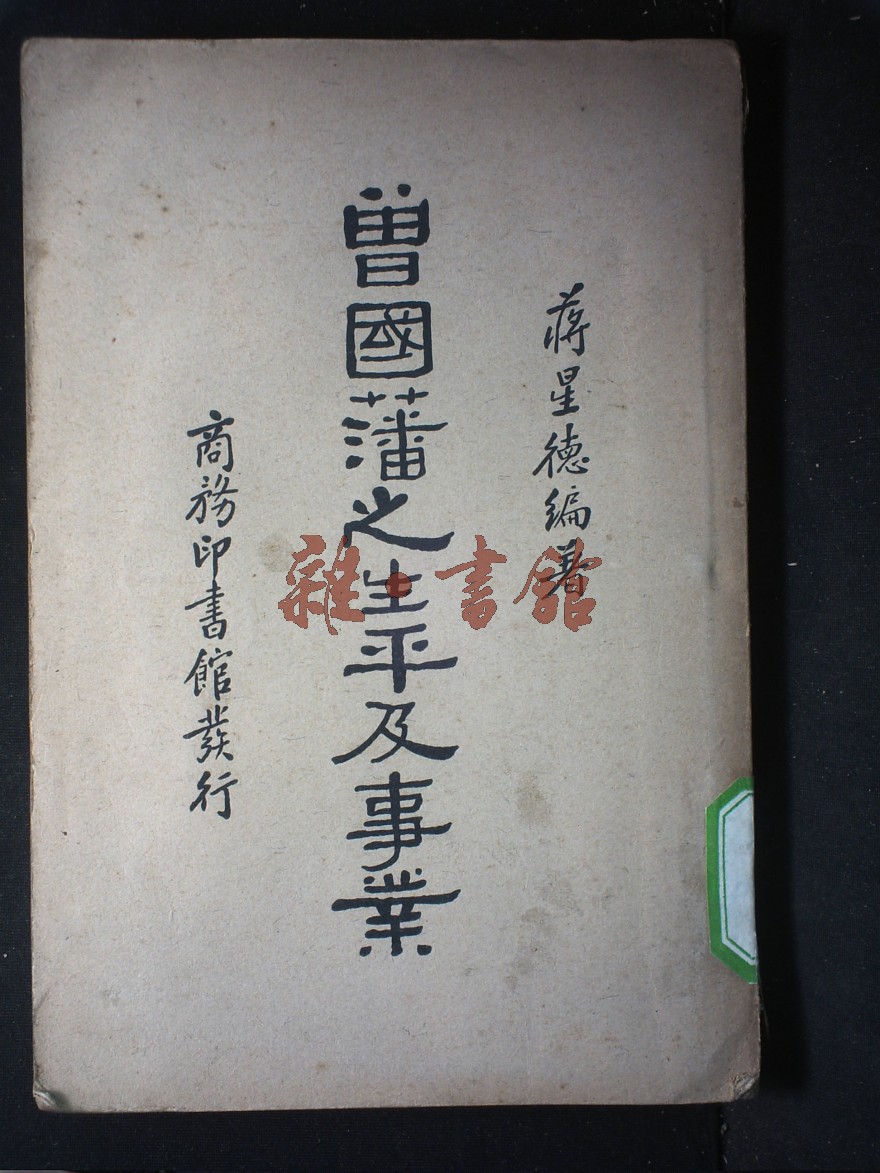 蔣星德編著
曾國藩之生平及事業
商務印書館發行
雜·書館